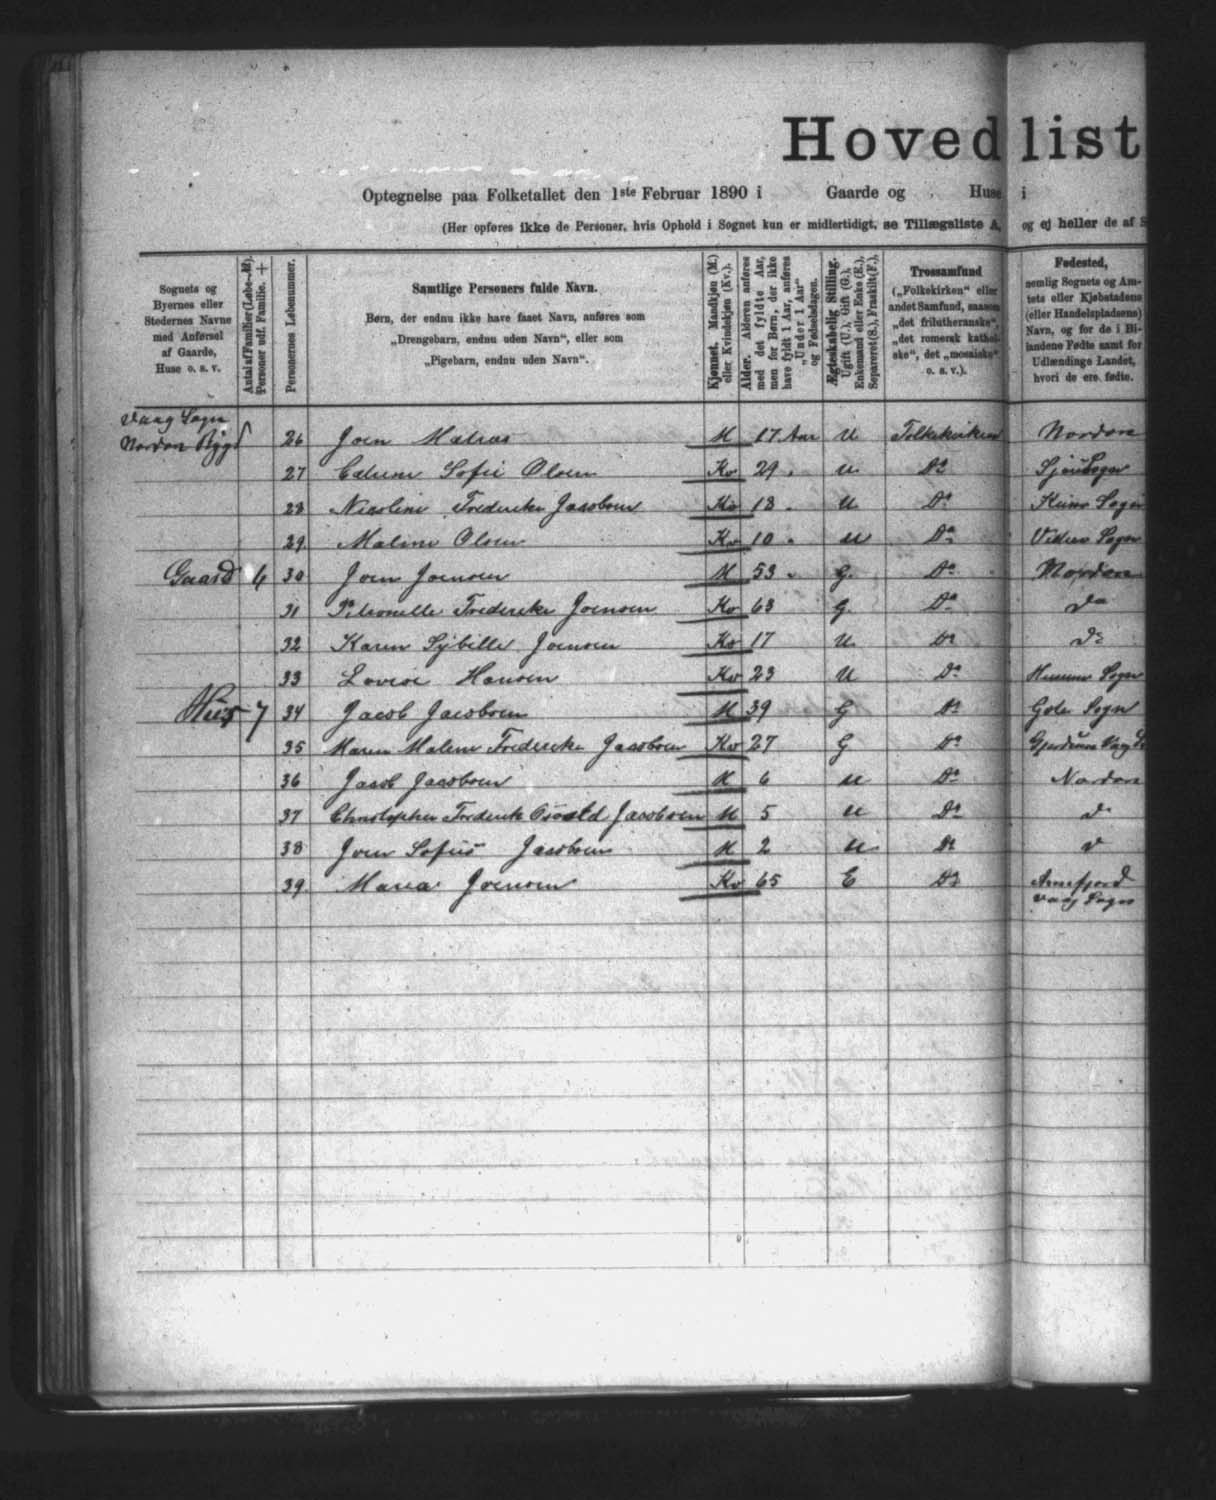 Hovedlist
Optegnelse paa Folketallet den 1ste Februar 1890 i Gaarde og Huse i
(Her opføres ikke de Personer, hvis Ophold i Sognet kun er midlertidigt, se Tillægsliste A, og ej heller de af S
Sognets og Byernes eller Stedernes Navne med Anførsel af Gaarde, Huse o. s. v.
Antal af Familier (Løbe-№). Personer udf. Familie. +
Personernes Løbenummer.
Samtlige Personers fulde Navn.
Børn, der endnu ikke have faaet Navn, anføres som
„Drengebarn, endnu uden Navn“, eller som
„Pigebarn, endnu uden Navn“.
Kjønnet. Mandkjøn (M.) eller Kvindekjøn (Kv.).
Alder. Alderen anføres med det fyldte Aar, men for Børn, der ikke have fyldt 1 Aar, anføres „Under 1 Aar“ og Fødselsdagen.
Ægteskabelig Stilling. Ugift (U.), Gift (G.), Enkemand eller Enke (E.), Separeret (S.), Fraskilt (F.).
Trossamfund („Folkekirken“ eller andet Samfund, saasom „det frilutheranske“, „det romersk katholske“, det „mosaiske“ o. s. v.).
Fødested, nemlig Sognets og Amtets eller Kjøbstadens (eller Handelspladsens) Navn, og for de i Bilandene Fødte samt for Udlændinge Landet, hvori de ere fødte.
Vaag Sogn
Nordøn Bygd 26 Joen Matras M 17 Aar U Folkekirken
27 Sofie Olsen Kv 29 U Do
28 Nicoline Frederike Jacobsen Kv 18 U Do Sogn
29 Maline Olsen Kv 10 U Do Sogn
Gaard 6 30 Joen Joensen M 53 G. Do
31 Petronelle Frederike Joensen Kv 63 G. Do Do
32 Karen Sybille Joensen Kv 17 U Do Do
33 Lovise Hansen Kv 23 U Do Sogn
Hus 7 34 Jacob Jacobsen M 39 G Do Sogn
35 Maren Maline Frederike Jacobsen Kv 27 G Do
36 Jacob Jacobsen M 6 U Do
37 Christopher Frederik Jacobsen M 5 U Do
38 Joen Sofus Jacobsen M 2 U Do
39 Maria Joensen Kv 65 E Do
Vaag Sogn